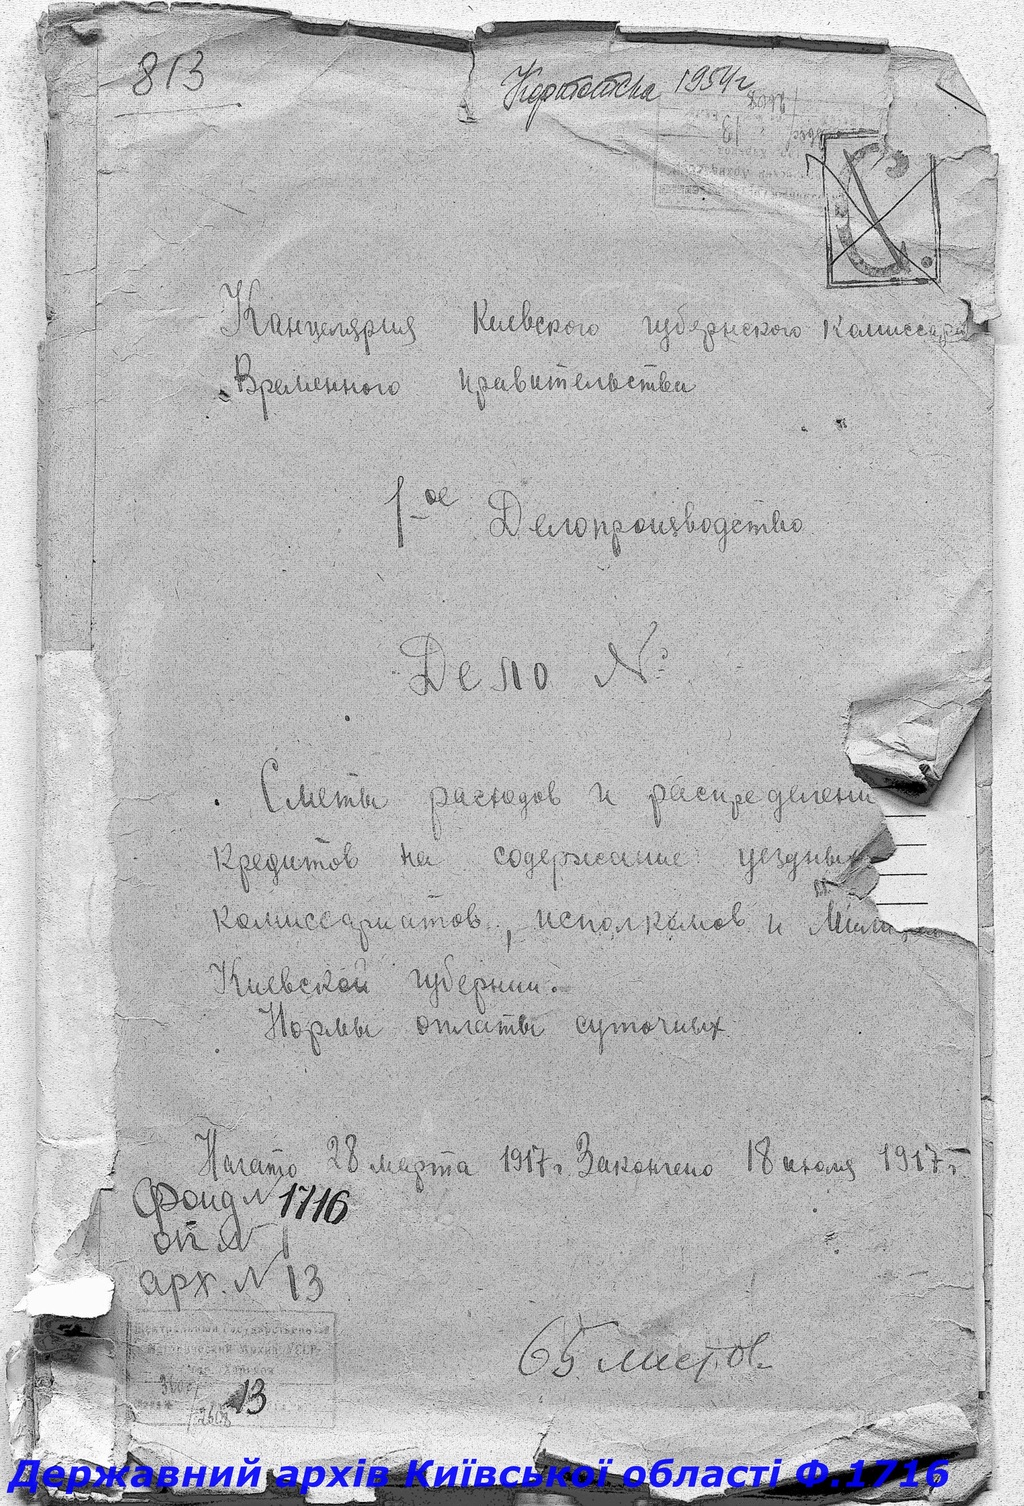 813
Картотека 1954 г
Канцелярия Киевского губернского Комиссара
Временного правительства
1-ое Делопроизводство
Дело №
Сметы расходов и распределени
кредитов на содержание уездных
комиссариатов, исполкомов и Мили
Киевской губернии.
Нормы оплаты суточных
Начато 28 марта 1917 г. Закончено 18 июля 1917 г.
Фонд № 1716
оп № 1
арх. № 13
Центральный Государственный
Исторический Архив УССР
гор. Харьков
13
2608
65 листов
Державний архів Київської області Ф.1716